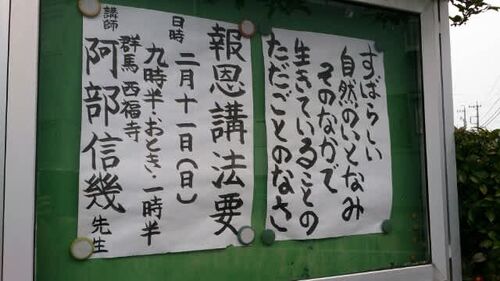 すばらしい
自然のいとなみ
そのなかで
生きていることの
ただごとのなさ
報恩講法要
日時 二月十一日(日)
九時半、おとき・一時半
講師 群馬 西福寺
阿部信幾先生